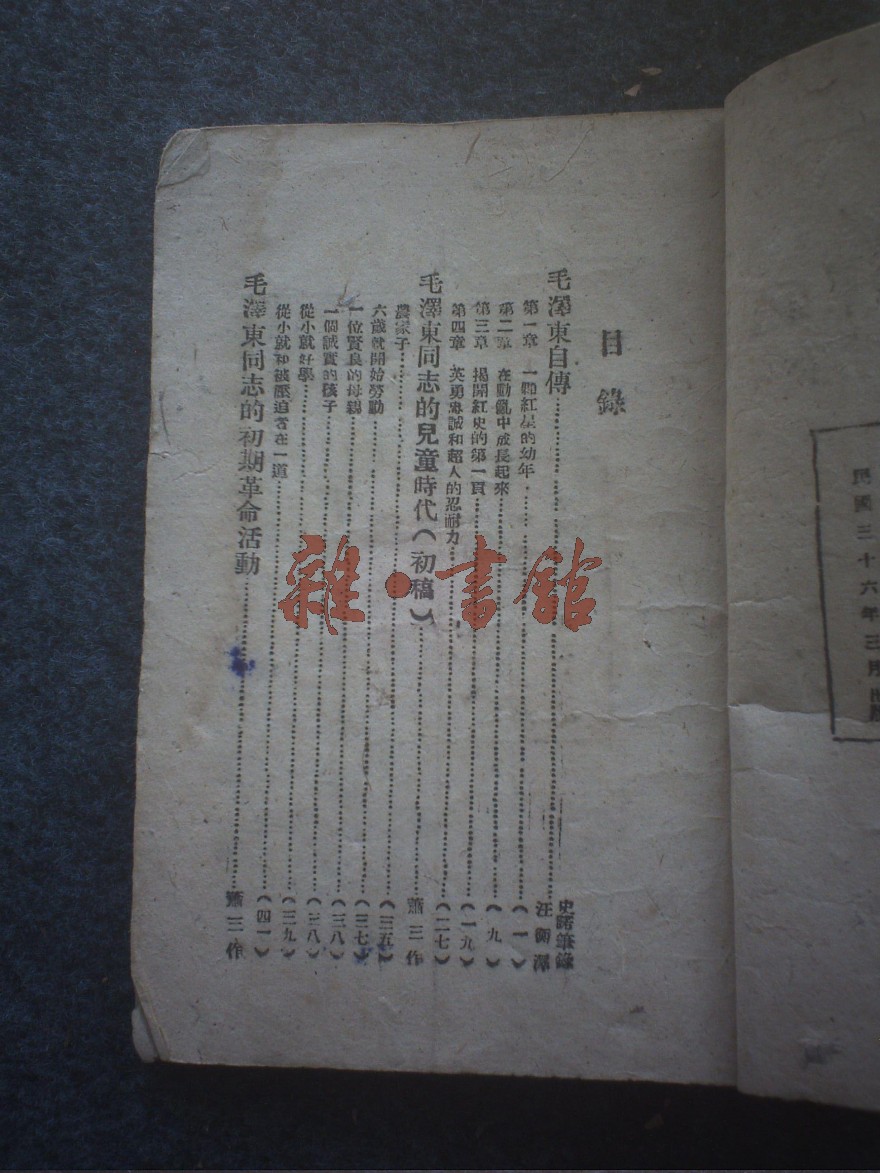 民國三十六年三月出版
目錄
毛澤東自傳……史諾筆錄 汪衡譯
第一章 一顆紅星的幼年……(一)
第二章 在動亂中成長起來……(九)
第三章 揭開紅史的第一頁……(一九)
第四章 英勇忠誠和超人的忍耐力……(二七)
毛澤東同志的兒童時代(初稿)……蕭三作
農家子……(三五)
六歲就開始勞動……(三七)
一位賢良的母親……(三八)
一個誠實的孩子……(三八)
從小就好學……(三九)
從小就和被壓迫者在一道……(四一)
毛澤東同志的初期革命活動……蕭三作
雜·書館